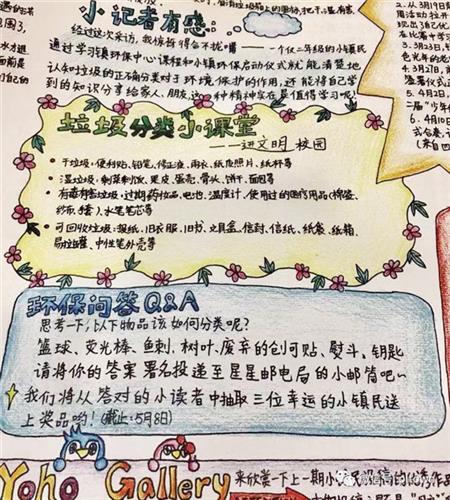 小记者有感:..
经过这次采访,我惊讶得合不拢嘴——一个仅二年级的小镇民
通过学习镇环保中心课程和小镇环保启动仪式就能清楚地
认知垃圾的正确分类对于环境保护的作用,还能将自己学
到的知识分享给家人、朋友,这一种精神实在是值得学习呢!
垃圾分类小课堂
——进文明校园
• 干垃圾:便利贴、铅笔、修正液、雨衣、纸质照片、纸杯等
• 湿垃圾:剩菜剩饭、果皮、蛋壳、骨头、饼干、面包等
• 有毒有害垃圾:过期药妆品、电池、温度计、使用过的医疗用品(棉签、
纱布、等)、水笔笔芯等
• 可回收垃圾:报纸、旧衣服、旧书、文具盒、信封、信纸、纸袋、纸箱、
易拉罐、中性笔外壳等
环保问答Q&A
思考一下,以下物品该如何分类呢?
篮球、荧光棒、鱼刺、树叶、废弃的创可贴、熨斗、钥匙
请将你的答案署名投递至星星邮电局的小邮筒吧~
我们将从答对的小读者中抽取三位幸运的小镇民送
上奖品哟!(截止:5月8日)
Yoho Gallery
来欣赏一下上一期小
2.从3月19日
3.3月23日,
4.3月27日,
5.4月2日,
6.4月10日